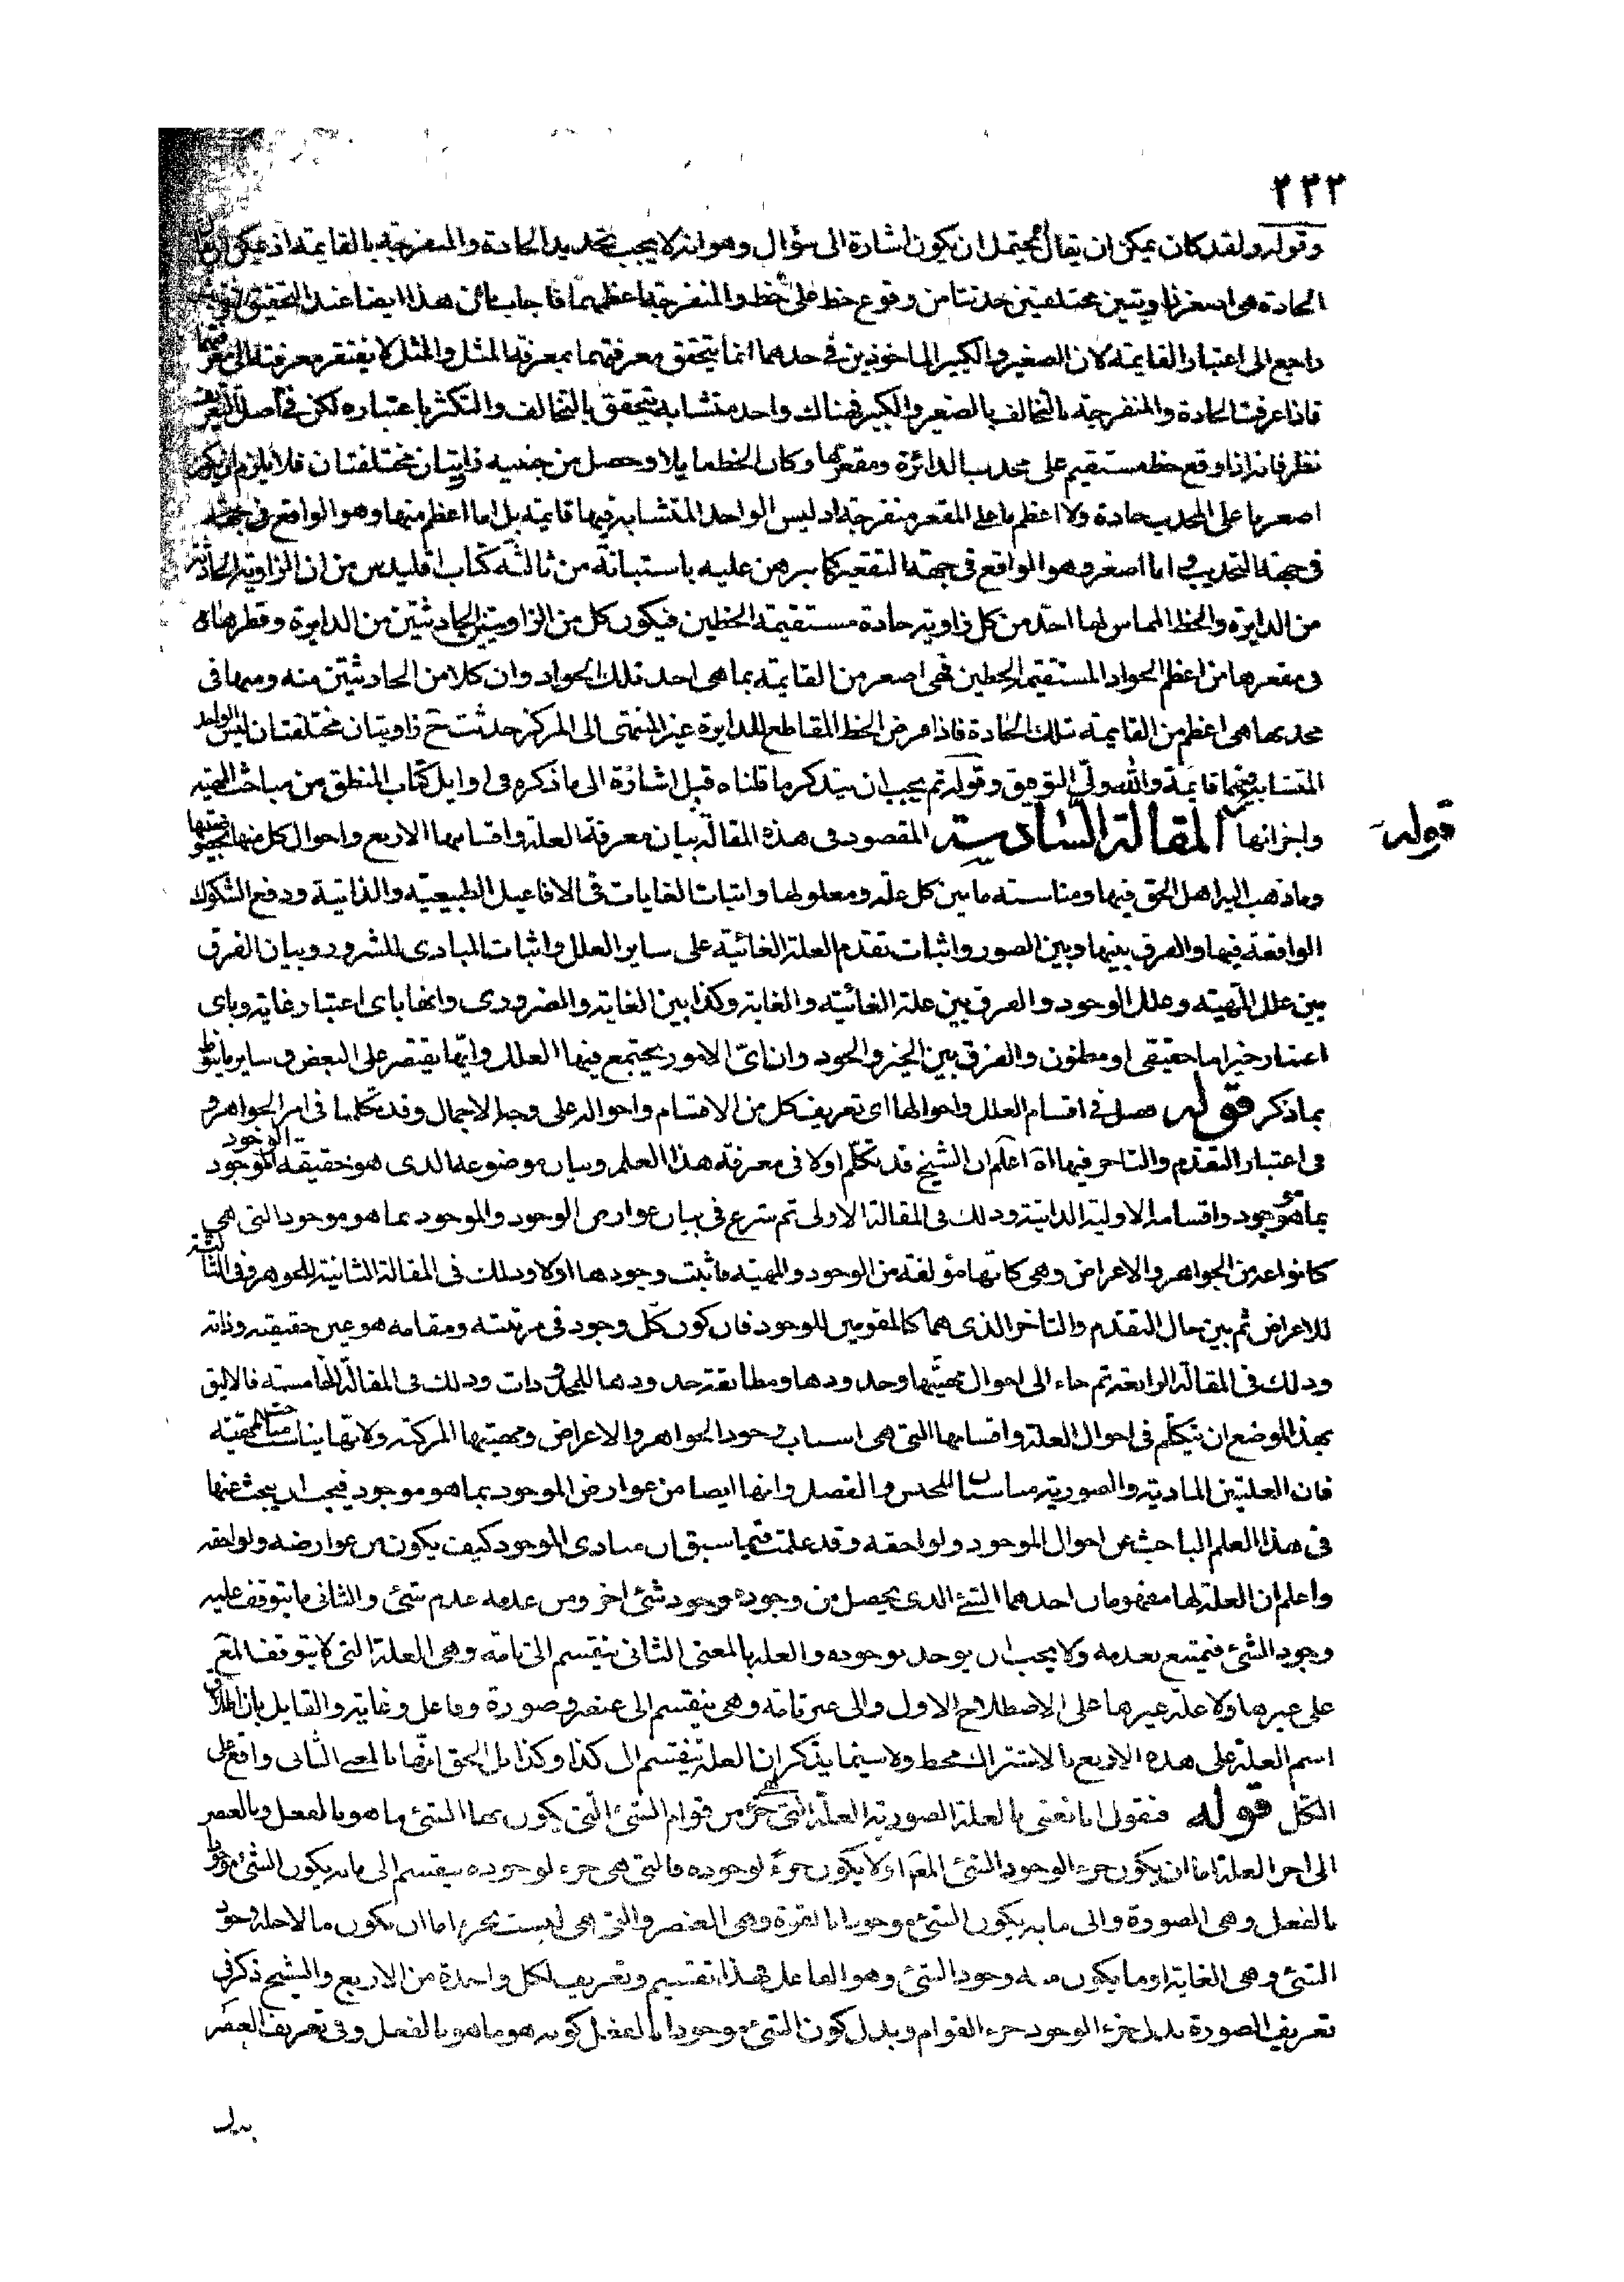 ٢٣٢
وقوله ولقد كان يمكن ان يقال يحتمل ان يكون اشارة الى سؤال وهو انه لا يجب تحديد الحادة والمنفرجة بالقايمة اذ يمكن ان يقال
الحادة هى اصغر زاويتين مختلفتين حدثتا من وقوع خط على خط والمنفرجة اعظمهما فاجاب بان هذا ايضا عند التحقيق
راجع الى اعتبار القايمة لان الصغير والكبير الماخوذين فى حدهما انما يتحقق معرفتهما بمعرفة المثل والمثل لا يفتقر معرفته الى معرفتهما
فاذا عرفت الحادة والمنفرجة بالتخالف بالصغير والكبير فهناك واحد متشابه يتحقق بالتخالف والتكثر باعتباره لكن فى اصل التعريف
نظر فانه اذا وقع خط مستقيم على محدب الدائرة ومقعرها وكان الخط مايلا وحصل من جنبيه زاويتان مختلفتان فلا يلزم ان يكون
اصغر ما على المحدب حادة ولا اعظم ما على المقعر منفرجة اذ ليس الواحد المتشابه فيها قايمة بل اما اعظم منها وهو الواقع فى جهته
فى جهة التحديب واما اصغر وهو الواقع فى جهة التقعير كما برهن عليه باستبانة من ثالثة كتاب اقليدس من ان الزاوية الحادثة
من الدايرة والخط المماس لها احد من كل زاوية حادة مستقيمة الخطين فيكون كل من الزاويتين الحادثتين من الدايرة وقطرها
ومقعرها من اعظم الحواد المستقيم الخطين فهى اصغر من القايمة بما هى احد تلك الحواد وان كلا من الحادثتين منه ومنها فى
محدبها هى اعظم من القايمة بتلك الحادة فاذا فرض الخط المقاطع للدايرة غير المنتهى الى المركز حدثت ح زاويتان مختلفتان ليس الواحد
المتشابه فيهما قايمة والله ولى التوفيق وقوله ثم يجب ان يتذكر ما قلناه قبل اشارة الى ما ذكره فى اوايل كتاب المنطق من مباحث المهية
واجزائها المقالة السادسة المقصود فى هذه المقالة بيان معرفة العلة واقسامها الاربع واحوال كل منها
قوله
وما ذهب اليه اهل الحق فيها ومناسبة ما بين كل علة ومعلولها واثبات الغايات فى الافاعيل الطبيعية والذاتية ودفع الشكوك
الواقعة فيها والفرق بينها وبين الصور واثبات تقدم العلة الغائية على ساير العلل واثبات المبادى للشرور وبيان الفرق
بين علل المهية وعلل الوجود والفرق بين علة الغائية والغاية وكذا بين الغاية والضرورى وانها باى اعتبار غاية وباى
اعتبار خير اما حقيقى او مظنون والفرق بين الخير والجود وان اى الامور يجتمع فيها العلل وايها يقتصر على البعض وساير ما يتعلق
بما ذكر قوله فصل فى اقسام العلل واحوالها اى تعريف كل من الاقسام واحواله على وجه الاجمال وقد تكلمنا فى امر الجواهر و
فى اعتبار التقدم والتاخر فيها اه اعلم ان الشيخ قد تكلم اولا فى معرفة هذا العلم وبيان موضوعه الذى هو حقيقة الوجود الموجود
بما هو موجود واقسامه الاولية الذاتية وذلك فى المقالة الاولى ثم شرع فى بيان عوارض الوجود والموجود بما هو موجود التى هى
كانواعه من الجواهر والاعراض وهى كانها مؤلفة من الوجود والمهية فاثبت وجودها اولا وذلك فى المقالة الثانية للجوهر وفى الثالثة
للاعراض ثم بين حال التقدم والتاخر الذى هما كالمقومين للوجود فان كون كل وجود فى مرتبته ومقامه هو عين حقيقته وذاته
وذلك فى المقالة الرابعة ثم جاء الى احوال مهيتها وحدودها ومطابقة حدودها للمحدودات وذلك فى المقالة الخامسة فالاليق
بهذا الموضع ان يتكلم فى احوال العلة واقسامها التى هى اسباب وجود الجواهر والاعراض ومهيتها المركبة ولانها يناسب مباحث المهية
فان العلتين المادية والصورية مناسبتان للجنس والفصل وانها ايضا من عوارض الموجود بما هو موجود فيجب ان يبحث عنها
فى هذا العلم الباحث عن احوال الموجود ولواحقه وقد علمت فيما سبق ان مبادى الموجود كيف يكون من عوارضه ولواحقه
واعلم ان العلة لها مفهومان احدهما الشئ الذى يحصل من وجوده وجود شئ اخر ومن عدمه عدم شئ والثانى ما يتوقف عليه
وجود الشئ فيمتنع بعدمه ولا يجب ان يوجد بوجوده والعلة بالمعنى الثانى ينقسم الى تامة وهى العلة التى لا يتوقف المع
على غيرها ولا علة غيرها على الاصطلاح الاول والى غير تامة وهى ينقسم الى عنصر وصورة وفاعل وغاية والقايل بان اطلاق
اسم العلة على هذه الاربع بالاشتراك مخط ولا سيما يذكر ان العلة ينقسم الى كذا وكذا بل الحق انها بالمعنى الثانى واقع على
الكل قوله فنقول انا نعنى بالعلة الصورية العلة التى هى جزء من قوام الشئ التى يكون بها الشئ ما هو بالفعل وبالعنصر
الى اخر العلة اما ان يكون جزء الوجود الشئ المعلول او لا يكون جزء لوجوده فالتى هى جزء لوجوده ينقسم الى ما به يكون الشئ موجودا
بالفعل وهى الصورة والى ما به يكون الشئ موجودا بالقوة وهى العنصر والتى هى ليست بجزء اما ان يكون ما لاجله وجود
الشئ وهى الغاية او ما يكون منه وجود الشئ وهو الفاعل هذا تقسيم وتعريف لكل واحدة من الاربع والشيخ ذكر فى
تعريف الصورة بدل جزء الوجود جزء القوام وبدل كون الشئ موجودا بالفعل كونه هو ما هو بالفعل وفى تعريف العنصر
بدل